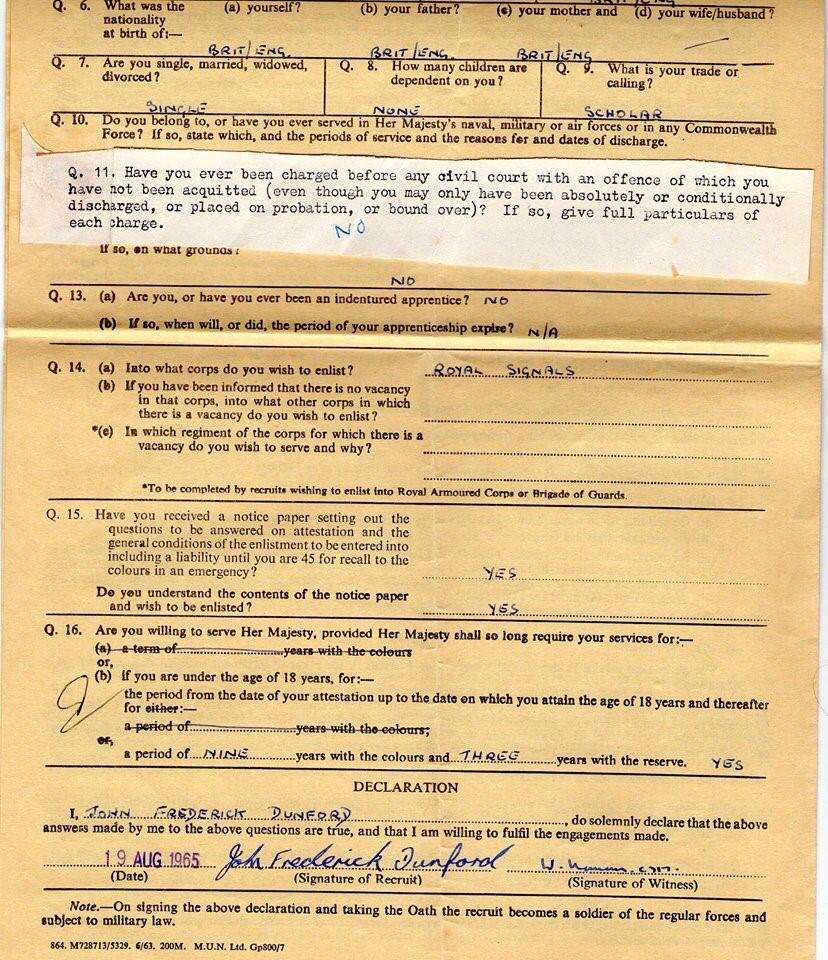 Q. 6. What was the (a) yourself? (b) your father? (c) your mother and (d) your wife/husband?
nationality
at birth of:—
BRIT/ENG. BRIT/ENG. BRIT/ENG
Q. 7. Are you single, married, widowed, Q. 8. How many children are Q. 9. What is your trade or
divorced? dependent on you? calling?
SINGLE NONE SCHOLAR
Q. 10. Do you belong to, or have you ever served in Her Majesty's naval, military or air forces or in any Commonwealth
Force? If so, state which, and the periods of service and the reasons for and dates of discharge.
Q. 11. Have you ever been charged before any civil court with an offence of which you
have not been acquitted (even though you may only have been absolutely or conditionally
discharged, or placed on probation, or bound over)? If so, give full particulars of
each charge. NO
If so, on what grounds?
NO
Q. 13. (a) Are you, or have you ever been an indentured apprentice? NO
(b) If so, when will, or did, the period of your apprenticeship expire? N/A
Q. 14. (a) Into what corps do you wish to enlist? ROYAL SIGNALS
(b) If you have been informed that there is no vacancy
in that corps, into what other corps in which
there is a vacancy do you wish to enlist?
*(c) In which regiment of the corps for which there is a
vacancy do you wish to serve and why?
*To be completed by recruits wishing to enlist into Royal Armoured Corps or Brigade of Guards.
Q. 15. Have you received a notice paper setting out the
questions to be answered on attestation and the
general conditions of the enlistment to be entered into
including a liability until you are 45 for recall to the
colours in an emergency? YES
Do you understand the contents of the notice paper
and wish to be enlisted? YES
Q. 16. Are you willing to serve Her Majesty, provided Her Majesty shall so long require your services for:—
(a) a term of years with the colours
or,
(b) if you are under the age of 18 years, for:—
the period from the date of your attestation up to the date on which you attain the age of 18 years and thereafter
for either:—
a period of years with the colours;
or,
a period of NINE years with the colours and THREE years with the reserve. YES
DECLARATION
I, JOHN FREDERICK DUNFORD, do solemnly declare that the above
answers made by me to the above questions are true, and that I am willing to fulfil the engagements made.
19 AUG 1965 John Frederick Dunford
(Date) (Signature of Recruit) (Signature of Witness)
Note.—On signing the above declaration and taking the Oath the recruit becomes a soldier of the regular forces and
subject to military law.
864. M728713/5329. 6/63. 200M. M.U.N. Ltd. Gp800/7